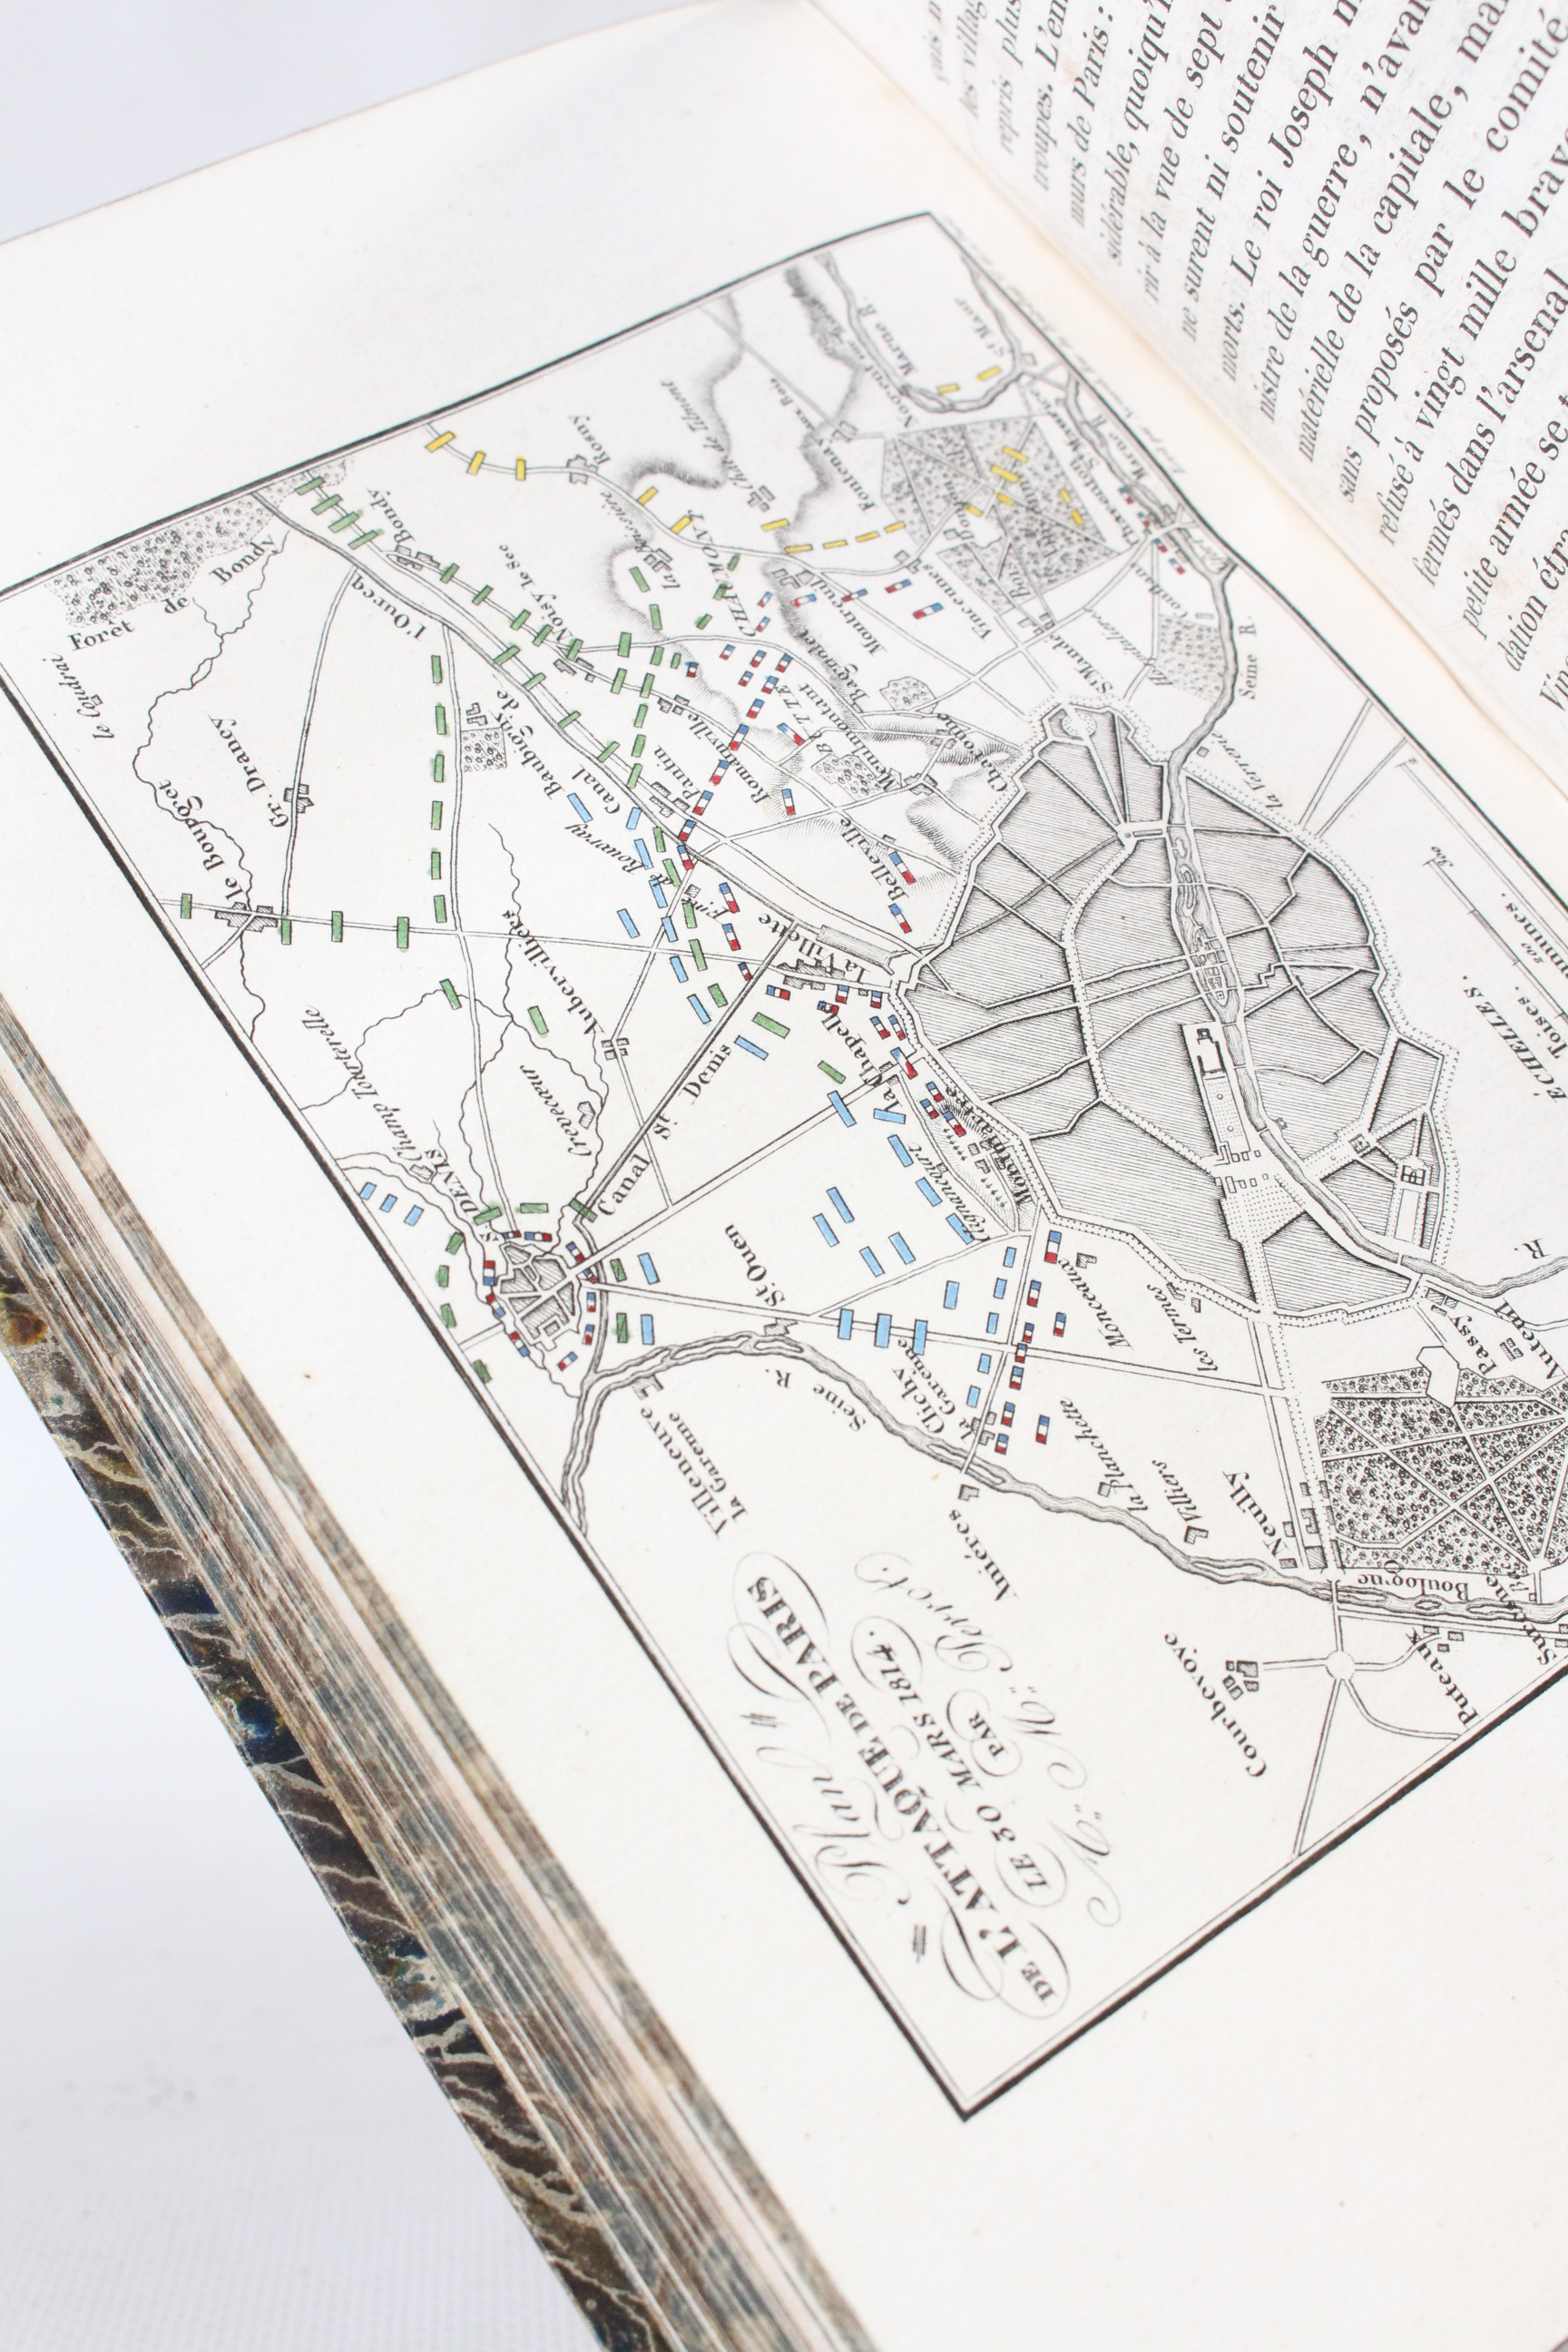 Plan
DE L'ATTAQUE DE PARIS
LE 30 MARS 1814.
PAR
Perrot
le Coudrai
Forêt de Bondy
Bondy
Rosny
Gr. Drancy
le Bourget
l'Ourcq
Noisy le Sec
Baubigny
Canal de
Pantin
Romainville
Bagnolet
Montreuil
Vincennes
Fontenay
Nogent
Marne R.
St. Maur
St. Mandé
Conflans
Charonne
Menilmontant
Belleville
la Villette
la Chapelle
Aubervilliers
Crevecœur
Champ Tourterelle
St. DENIS
Canal St. Denis
St. Ouen
Clignancourt
Montmartre
Monceaux
les Termes
Clichy
la Garenne
la Planchette
Villiers
Neuilly
Villeneuve
la Garenne
Seine R.
Anières
Courbevoye
Puteaux
Boulogne
Passy
Auteuil
R.
Seine R.
la Verrerie
ÉCHELLES.
Toises.
les villag
repris plus
troupes. L'en
murs de Paris :
sidérable, quoiqu'i
rir à la vue de sept
ne surent ni soutenir
morts. Le roi Joseph
nistre de la guerre, n'avai
matérielle de la capitale, mai
sans proposés par le comité
refusé à vingt mille brav
fermés dans l'arsenal
petite armée se
dation étra
Vin